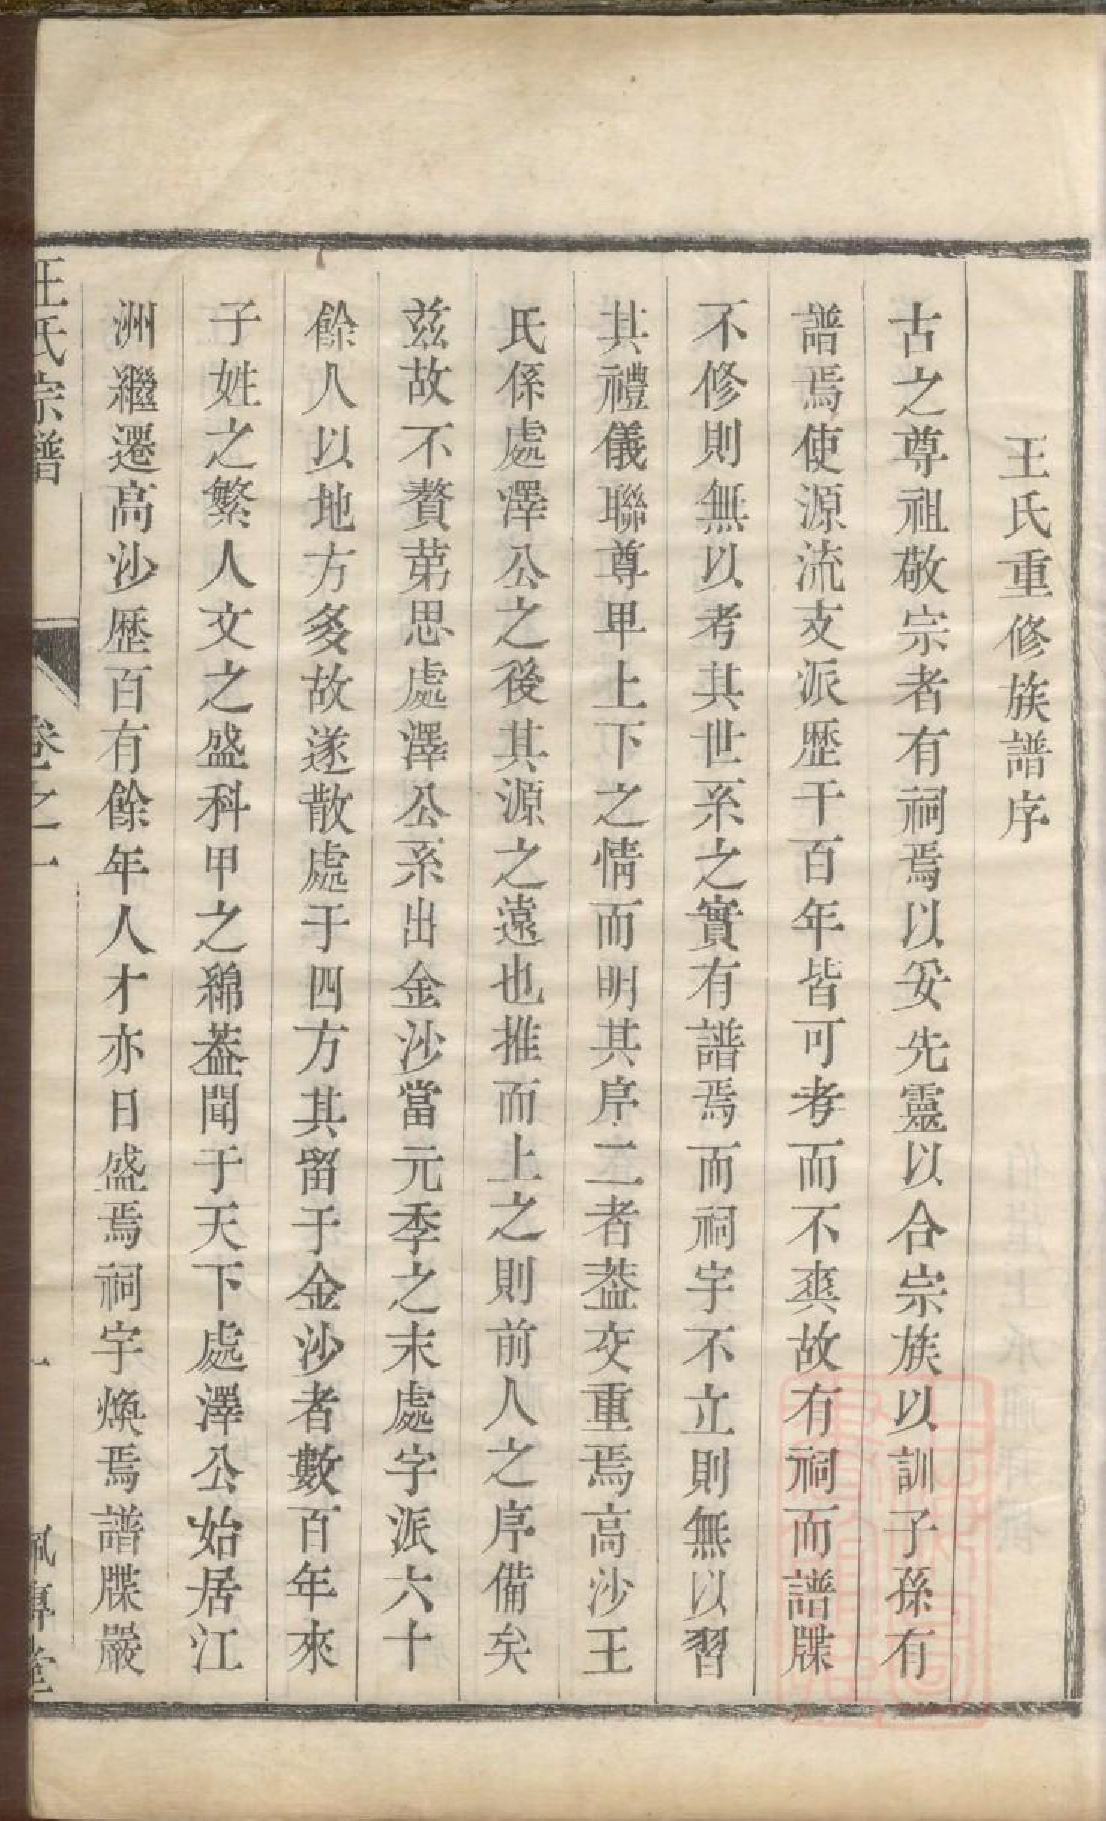 王氏重修族譜序
古之尊祖敬宗者有祠焉以妥先靈以合宗族以訓子孫有
譜焉使源流支派歷千百年皆可考而不爽故有祠而譜牒
不修則無以考其世系之實有譜焉而祠宇不立則無以習
其禮儀聯尊卑上下之情而明其序二者葢交重焉高沙王
氏係處澤公之後其源之遠也推而上之則前人之序備矣
兹故不贅苐思處澤公系出金沙當元季之末處字派六十
餘人以地方多故遂散處于四方其留于金沙者數百年來
子姓之繁人文之盛科甲之綿葢聞于天下處澤公始居江
洲繼遷高沙歴百有餘年人才亦日盛焉祠宇煥焉譜牒嚴
王氏宗譜
卷之一
一